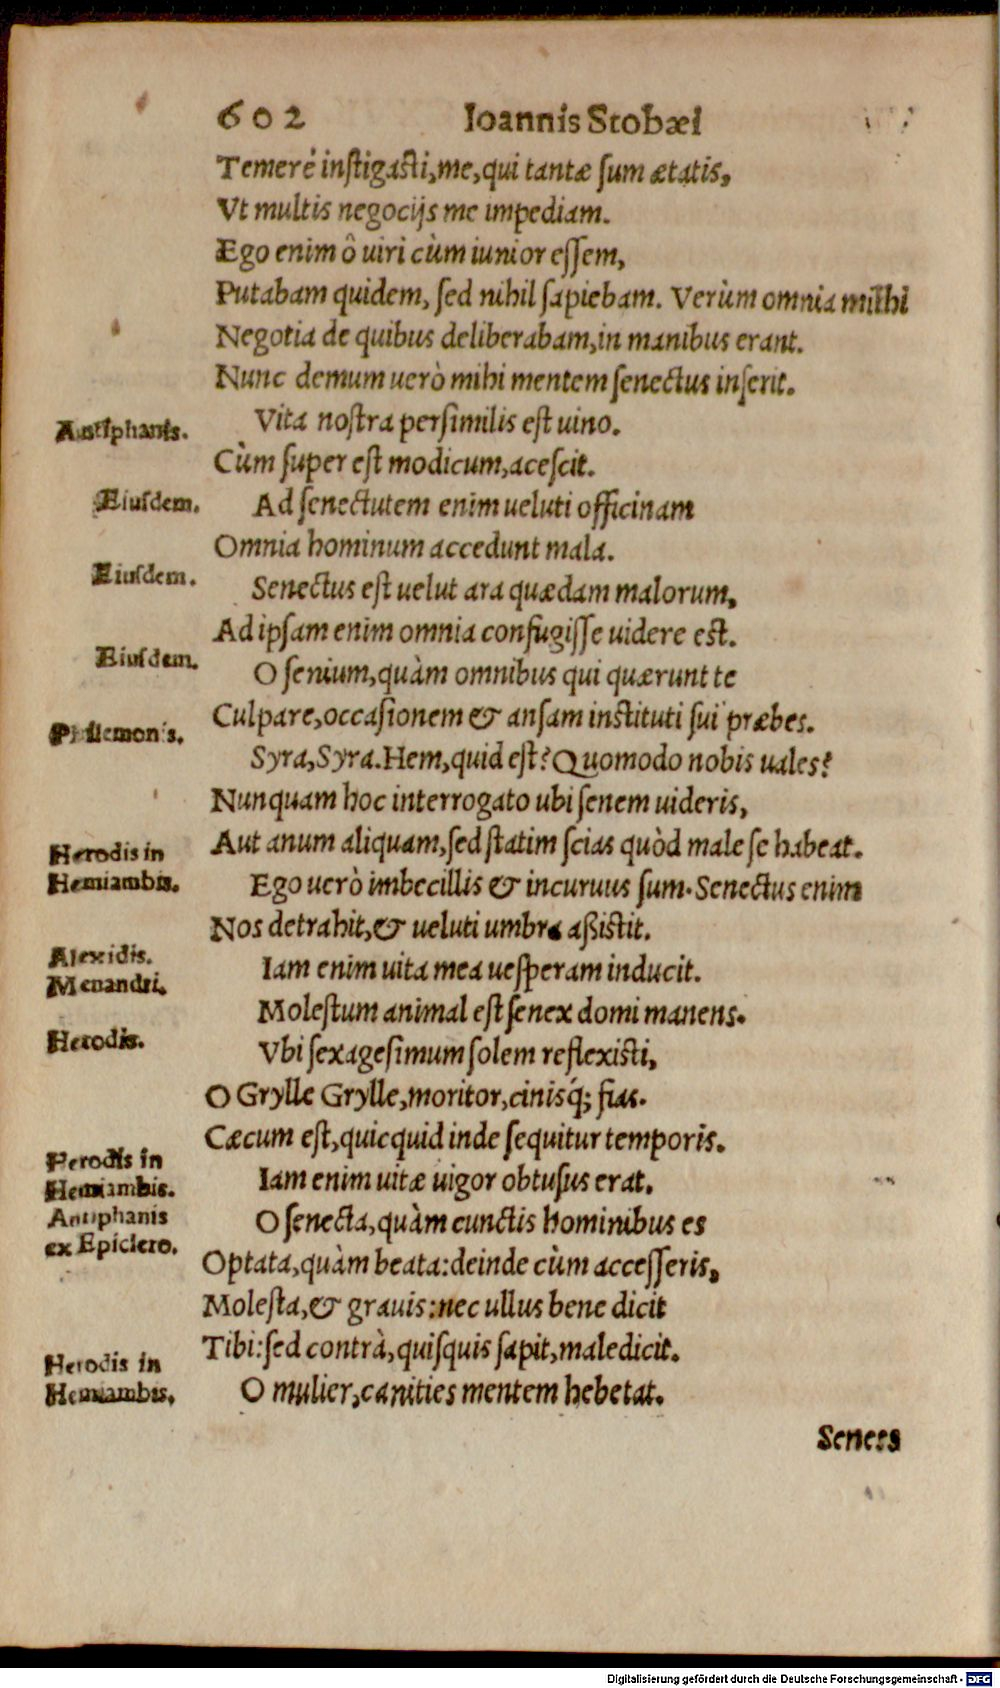 602 Ioannis Stobæi
Temerè instigasti, me, qui tantæ sum ætatis,
Vt multis negocijs me impediam.
Ego enim ô uiri cùm iunior essem,
Putabam quidem, sed nihil sapiebam. Verùm omnia mihi
Negotia de quibus deliberabam, in manibus erant.
Nunc demum uerò mihi mentem senectus inserit.
Antiphanis. Vita nostra persimilis est uino.
Cùm super est modicum, acescit.
Eiusdem. Ad senectutem enim ueluti officinam
Omnia hominum accedunt mala.
Eiusdem. Senectus est uelut ara quædam malorum,
Ad ipsam enim omnia confugisse uidere est.
Eiusdem. O senium, quàm omnibus qui quærunt te
Culpare, occasionem & ansam instituti sui præbes.
Philemonis. Syra, Syra. Hem, quid est? Quomodo nobis uales?
Nunquam hoc interrogato ubi senem uideris,
Aut anum aliquam, sed statim scias quòd male se habeat.
Herodis in
Hemiambis. Ego uerò imbecillis & incuruus sum. Senectus enim
Nos detrahit, & ueluti umbra aßistit.
Alexidis. Iam enim uita mea uesperam inducit.
Menandri. Molestum animal est senex domi manens.
Herodis. Vbi sexagesimum solem reflexisti,
O Grylle Grylle, moritor, cinisq́; fias.
Cæcum est, quicquid inde sequitur temporis.
Herodis in
Hemiambis. Iam enim uitæ uigor obtusus erat.
Antiphanis
ex Epiclero. O senecta, quàm cunctis hominibus es
Optata, quàm beata: deinde cùm accesseris,
Molesta, & grauis: nec ullus bene dicit
Tibi: sed contrà, quisquis sapit, maledicit.
Herodis in
Hemiambis. O mulier, canities mentem hebetat.
Senees
Digitalisierung gefördert durch die Deutsche Forschungsgemeinschaft - DFG